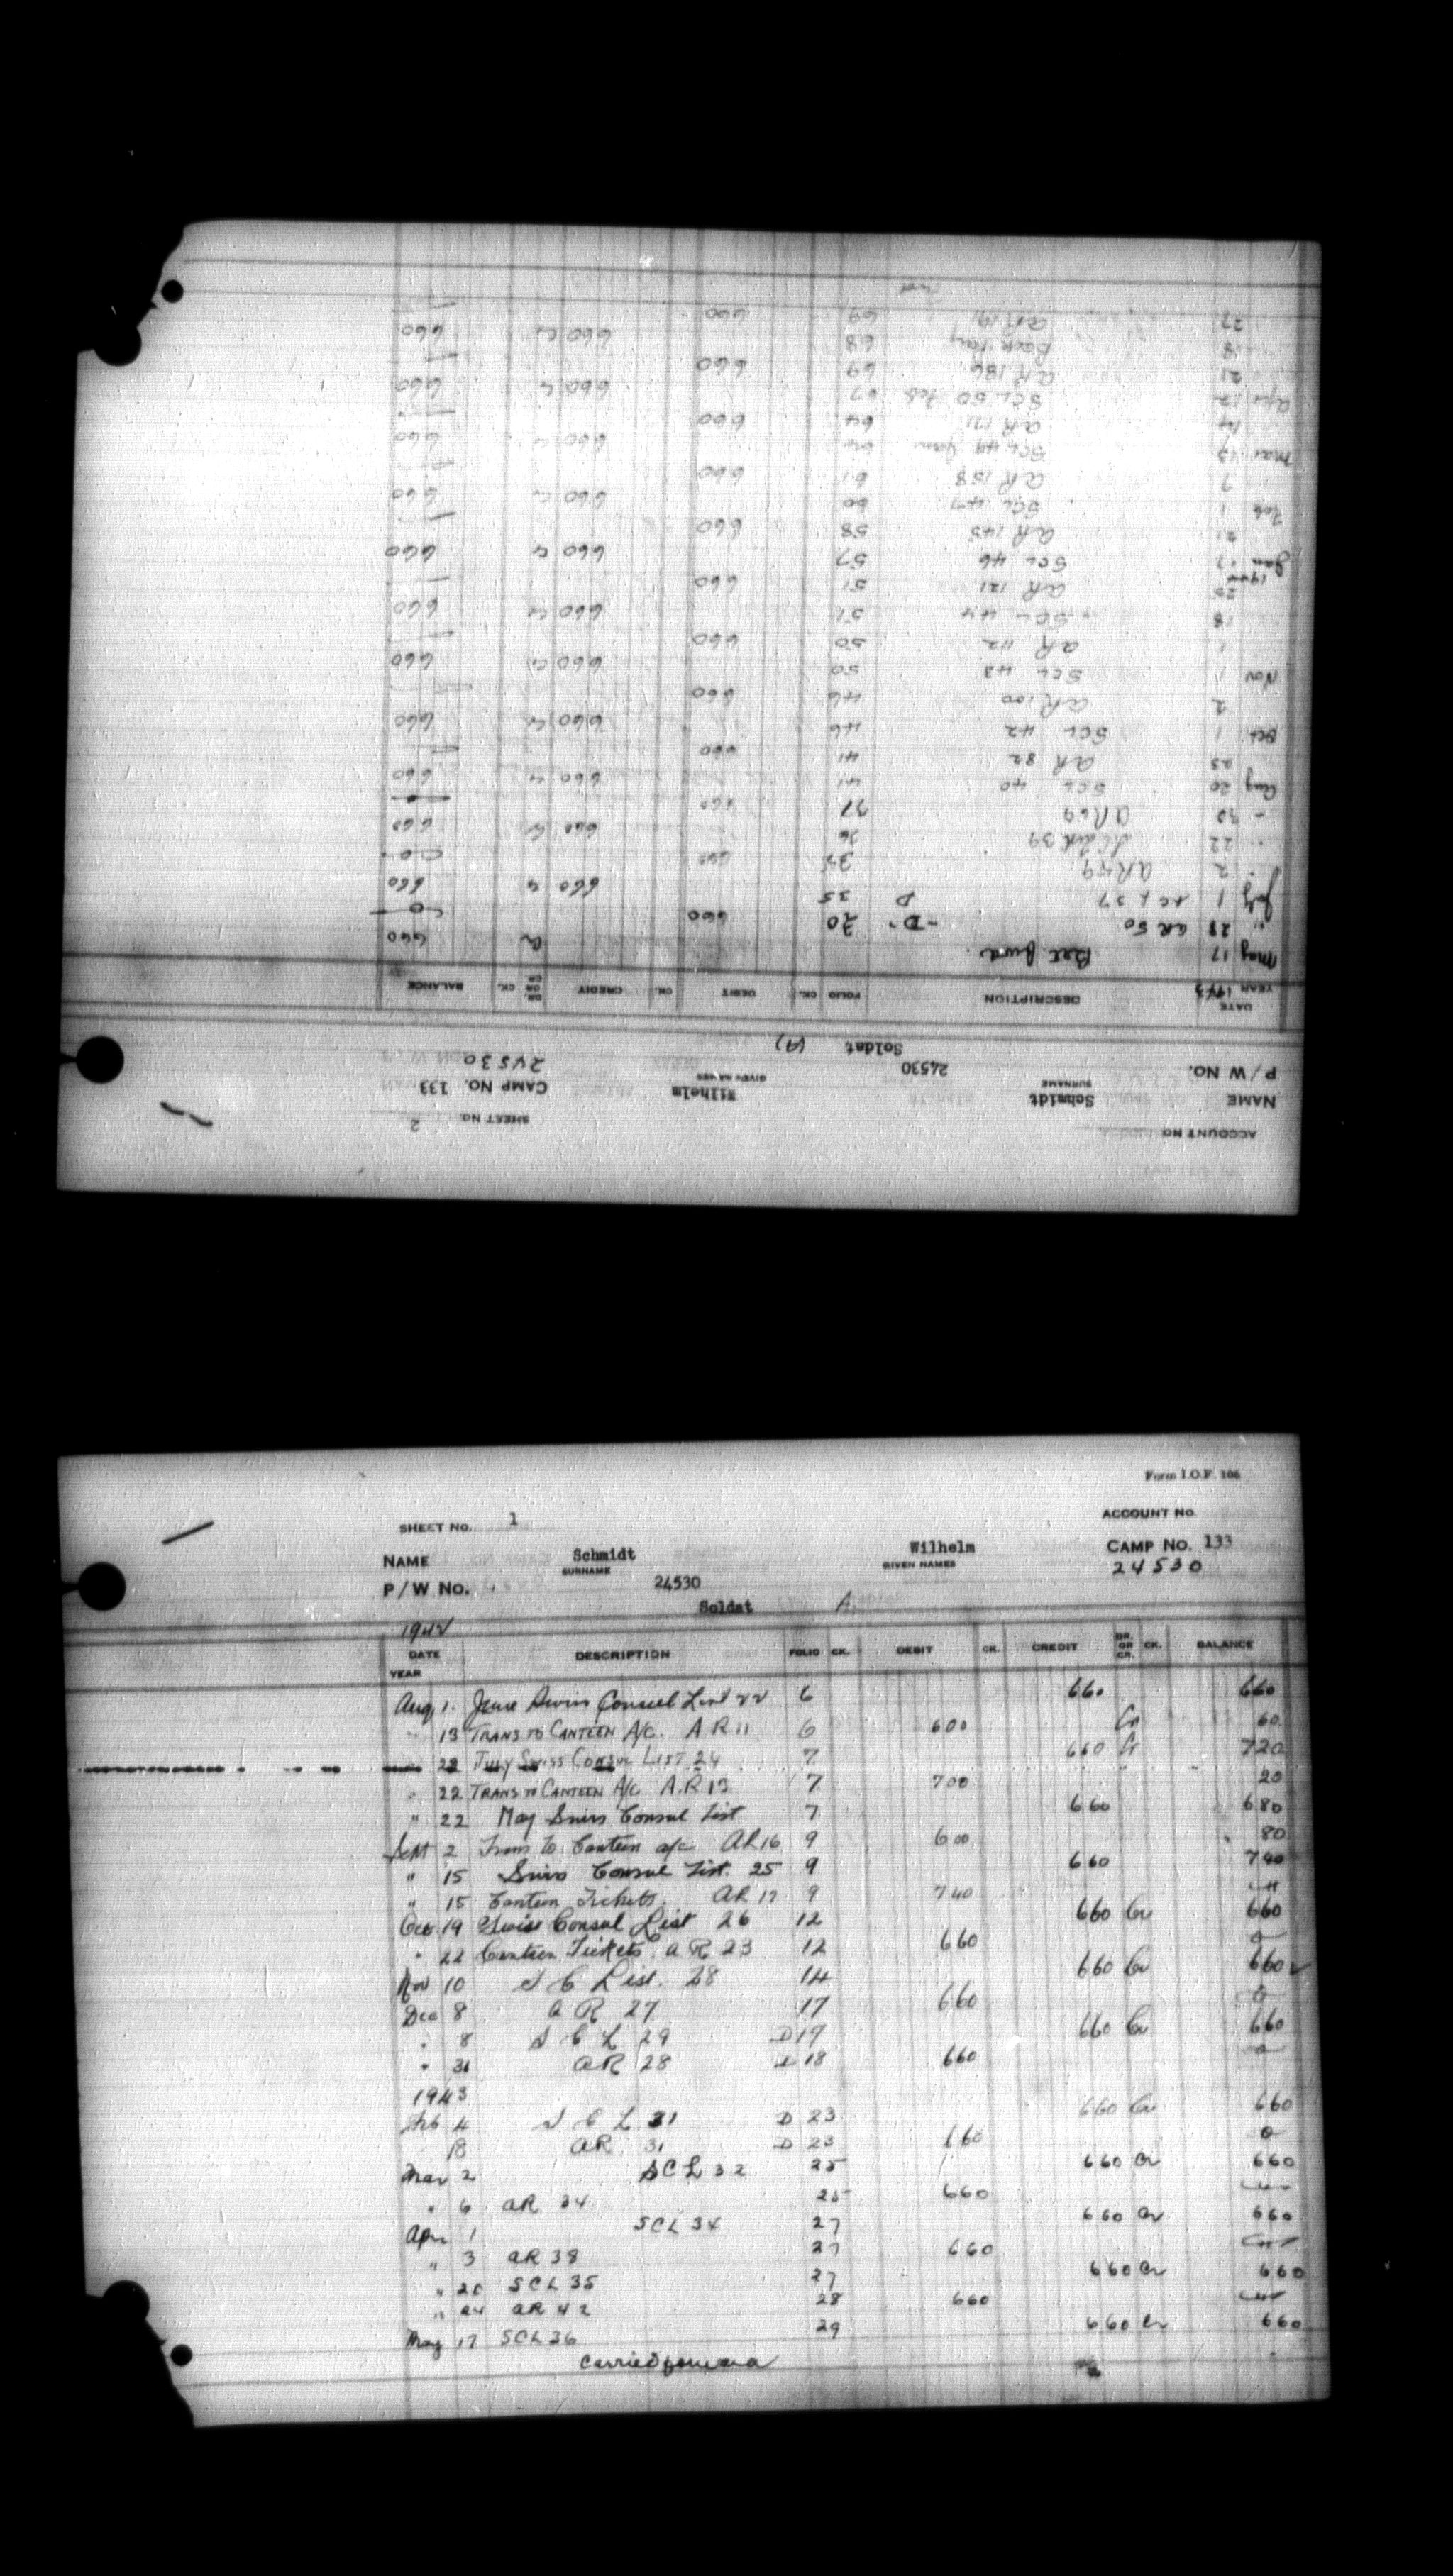 Form I.O.F. 106
SHEET NO. 1 ACCOUNT NO.
NAME Schmidt Wilhelm CAMP NO. 133
SURNAME GIVEN NAMES 24530
P/W No. 24530
Soldat A
1942
DATE DESCRIPTION FOLIO CK. DEBIT CK. CREDIT DR. OR CR. CK. BALANCE
YEAR
Aug 1. June Swiss Consul List 22 6 660 660
" 13 TRANS TO CANTEEN A/C. A.R 11 6 600 Cr 60
22 July Swiss Consul List 24 7 660 Cr 720
" 22 TRANS TO CANTEEN A/C A.R 13 7 700 20
" 22 May Swiss Consul List 7 660 680
Sept 2 Trans to Canteen a/c AR 16 9 600 80
" 15 Swiss Consul List. 25 9 660 740
" 15 Canteen Tickets. AR 17 9 740
Oct 19 Swiss Consul List 26 12 660 Cr 660
" 22 Canteen Tickets. A R 23 12 660 0
Nov 10 S C List. 28 14 660 Cr 660
Dec 8 A R 27 17 660 0
" 8 S C L 29 D 17 660 Cr 660
" 31 AR 28 D 18 660 0
1943
Feb 4 S C L 31 D 23 660 Cr 660
18 AR 31 D 23 660 0
Mar 2 SCL 32 25 660 Cr 660
" 6 AR 34 25 660
Apr 1 SCL 34 27 660 Cr 660
" 3 AR 38 27 660
" 20 SCL 35 27 660 Cr 660
" 24 AR 42 28 660
May 17 SCL 36 29 660 Cr 660
Carried forward
ACCOUNT NO. SHEET NO. 2
NAME Schmidt Wilhelm CAMP NO. 133
SURNAME GIVEN NAMES 24530
P/W NO. 24530
Soldat (A)
DATE DESCRIPTION FOLIO CK. DEBIT CK. CREDIT DR. OR CR. CK. BALANCE
YEAR 1943
May 17 Bal fwd. Cr 660
" 28 AR 50 -D- 30 660 0
July 1 SCL 37 D 35 660 Cr 660
" 2 AR 59 35 660 0
" 22 39 36 660 Cr 660
" 30 AR 69 37 660
Aug 20 SCL 40 41 660 Cr 660
25 AR 82 41 660
Oct 1 SCL 42 46 660 Cr 660
2 AR 100 46 660
Nov 1 SCL 43 50 660 Cr 660
1 AR 112 50 660
18 SCL 44 51 660 Cr 660
25 AR 121 51 660
1944
Jan 17 SCL 46 57 660 Cr 660
21 AR 145 58 660
Feb 1 SCL 47 60 660 Cr 660
7 AR 158 61 660
Mar 13 SCL 49 Jan 64 660 Cr 660
14 AR 171 64 660
Apr 12 SCL 50 Feb 67 660 Cr 660
21 AR 186 69 660
18 Back Pay 68 660 Cr 660
27 AR 191 69 660